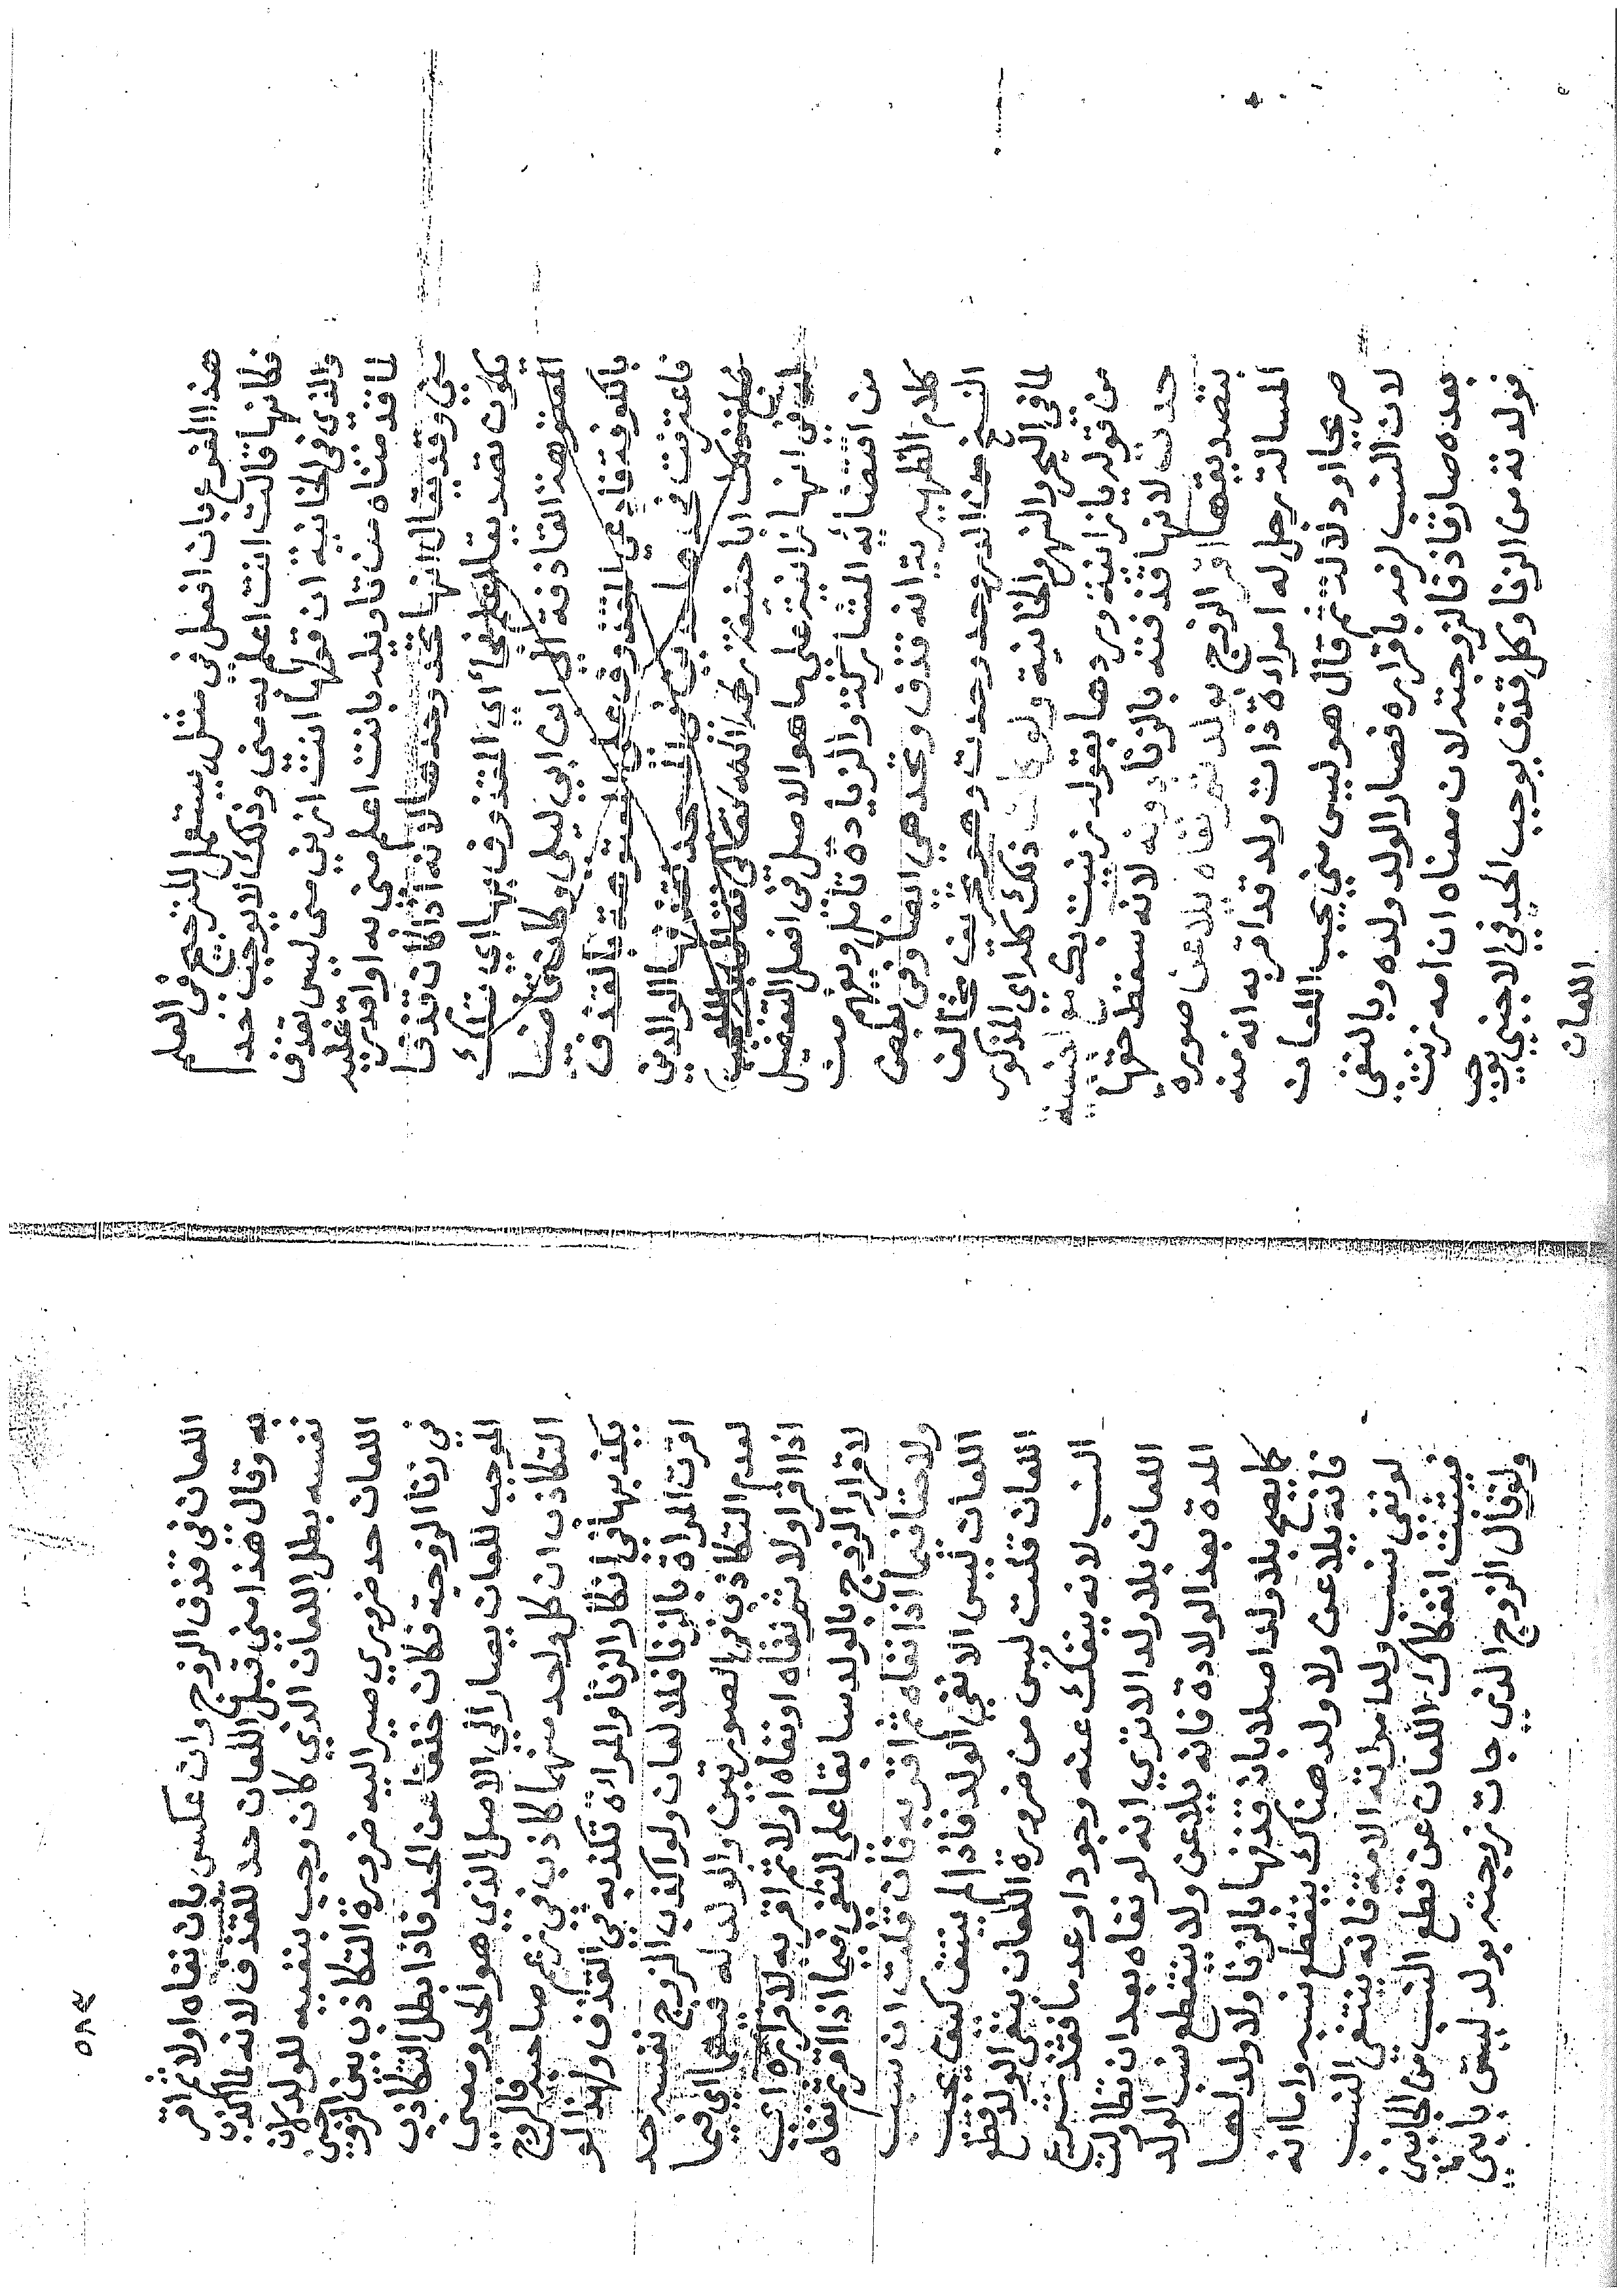 هذا الفرع بان افعل في مثله يستعمل للترجيح في العلم
فكانها قالت انت اعلم به مني وذلك لا يوجب حدا
والذي في الخانية ان قولها انت ازني مني ليس بقذف
لما قدمناه من تاويله بانت اعلم مني به او اقدر عليه
مني وقد يقال انها تحد وحدها لانه اذا كان قذفا
يكون تصديقا المقذوف بها اي بتلك
المعتوهة القاذفة ابن ابي ليلى وكان قاضيا
بالكوفة فادعي المقذوف على المعتوهة بالقذف
فاعترفت فحدها حدين في المسجد لقذفها الوالدين
ابا حنيفة رحمه الله تعالى
في انها زانية على ما هو الاصل في افعل التفضيل
من اقتضائه المشاركة والزيادة تامل ويفهم من
كلام الظهيرية انه قذف وتحد هي ايضا وفي بعض
النسخ من الدرر وحد وحدت وهو تحريف مخالف
لما في البحر والنهر والخانية ولو كان ذلك كله اي المذكور
من قوله يا زانية وردها بقوله زنيت بك مع اجنبية
حدت لانها قذفته بالزنا دونه لانه سقط حقها
بتصديقها اقر الزوج بولد ثم نفاه يلاعن صورة
المسالة رجل له امراة ذات ولد قد اقر به انه منه
صريحا او دلالة ثم قال هو ليس مني يجب اللعان
لان النسب لزمه باقراره فصار الولد ولده وبالنفي
بعده صار قاذفا لزوجته لان معناه ان امه زنت
فولدته من الزنا وكل قذف يوجب الحد في الاجنبي يوجب
اللعان
٥٨٤
اللعان في قذف الزوج وان عكس بان نفاه اولا ثم اقر
به وقال هذا مني قبل اللعان حد للقذف لانه لما اكذب
نفسه بطل اللعان الذي كان وجب بنفيه للولد لان
اللعان حد ضروري صير اليه ضرورة التكاذب بين الزوجين
في زنا الزوجة فكان خلفا عن الحد فاذا بطل التكاذب
الموجب للعان يصار الي الاصل الذي هو الحد ومعني
التكاذب ان كل واحد منهما كاذب في زعم صاحبه فالزوج
يكذبها في انكار الزنا والمراة تكذبه في القذف ولهذا لو
اقرت المراة بالزنا فلا لعان ولو اكذب الزوج نفسه حد
لعدم التكاذب في الصورتين والولد له فيهما اي فيما
اذا اقر اولا ثم نفاه او نفاه اولا ثم اقر به لاقراره اي
لاقرار الزوج بالولد سابقا على النفي فيما اذا اقر ثم نفاه
ولاحقا فيما اذا نفاه ثم اقر به فان قلت ان سبب
اللعان ليس الا نفي الولد فاذا لم ينتف كيف يجب
اللعان قلت ليس من ضرورة اللعان بنفي الولد قطع
النسب لانه ينفك عنه وجودا وعدما فقد شرع
اللعان بلا ولد الا تري انه لو نفاه بعد ان تطاولت
المدة بعد الولادة فانه يلاعن ولا ينقطع نسب الولد
كما يصح بلا ولد اصلا بان قذفها بالزنا ولا ولد لها
فانه يلاعن ولا ولد هناك ينقطع نسبه واما انه
لو نفي نسب ولد امراته الامة فانه ينتفي النسب
فيثبت انفكاك اللعان عن قطع النسب من الجانبين
ولو قال الزوج الذي جات زوجته بولد ليس بابني